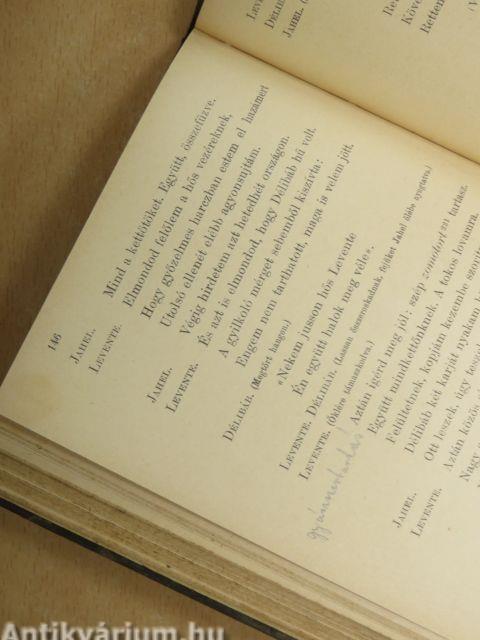 LEV
DÉLIB
JAHEL. (
Re
Köve
Retten
(V
146
JAHEL. Mind a kettőtöket. Együtt, összefűzve.
LEVENTE. Elmondod felőlem a hős vezéreknek,
Hogy győzelmes harczban estem el hazámért
Utolsó ellenét elébb agyonsujtám.
JAHEL. Végig hirdetem azt hetedhét országon.
LEVENTE. És azt is elmondod, hogy Délibáb hű volt.
A gyilkoló mérget sebemből kiszívta;
Engem nem tarthatott, maga is velem jött.
DÉLIBÁB. (Megtört hangon.)
«Nekem jusson hős Levente
Én együtt halok meg véle».
LEVENTE. DÉLIBÁB. (Lassan összeroskadnak, fejüket Jahel ölébe nyugtatva.)
LEVENTE. (Öklére támaszkodva.)
Aztán igérd meg jól: szép zomodort
tartasz.
Együtt mindkettőnknek. A tokos lovamra
Felültetnek, kopjám kezembe szorit
Délibáb két karját nyakam k
Ott leszek, úgy lesze
JAHEL. Aztán közös s
LEVENTE. Nagy
Antikvárium.hu